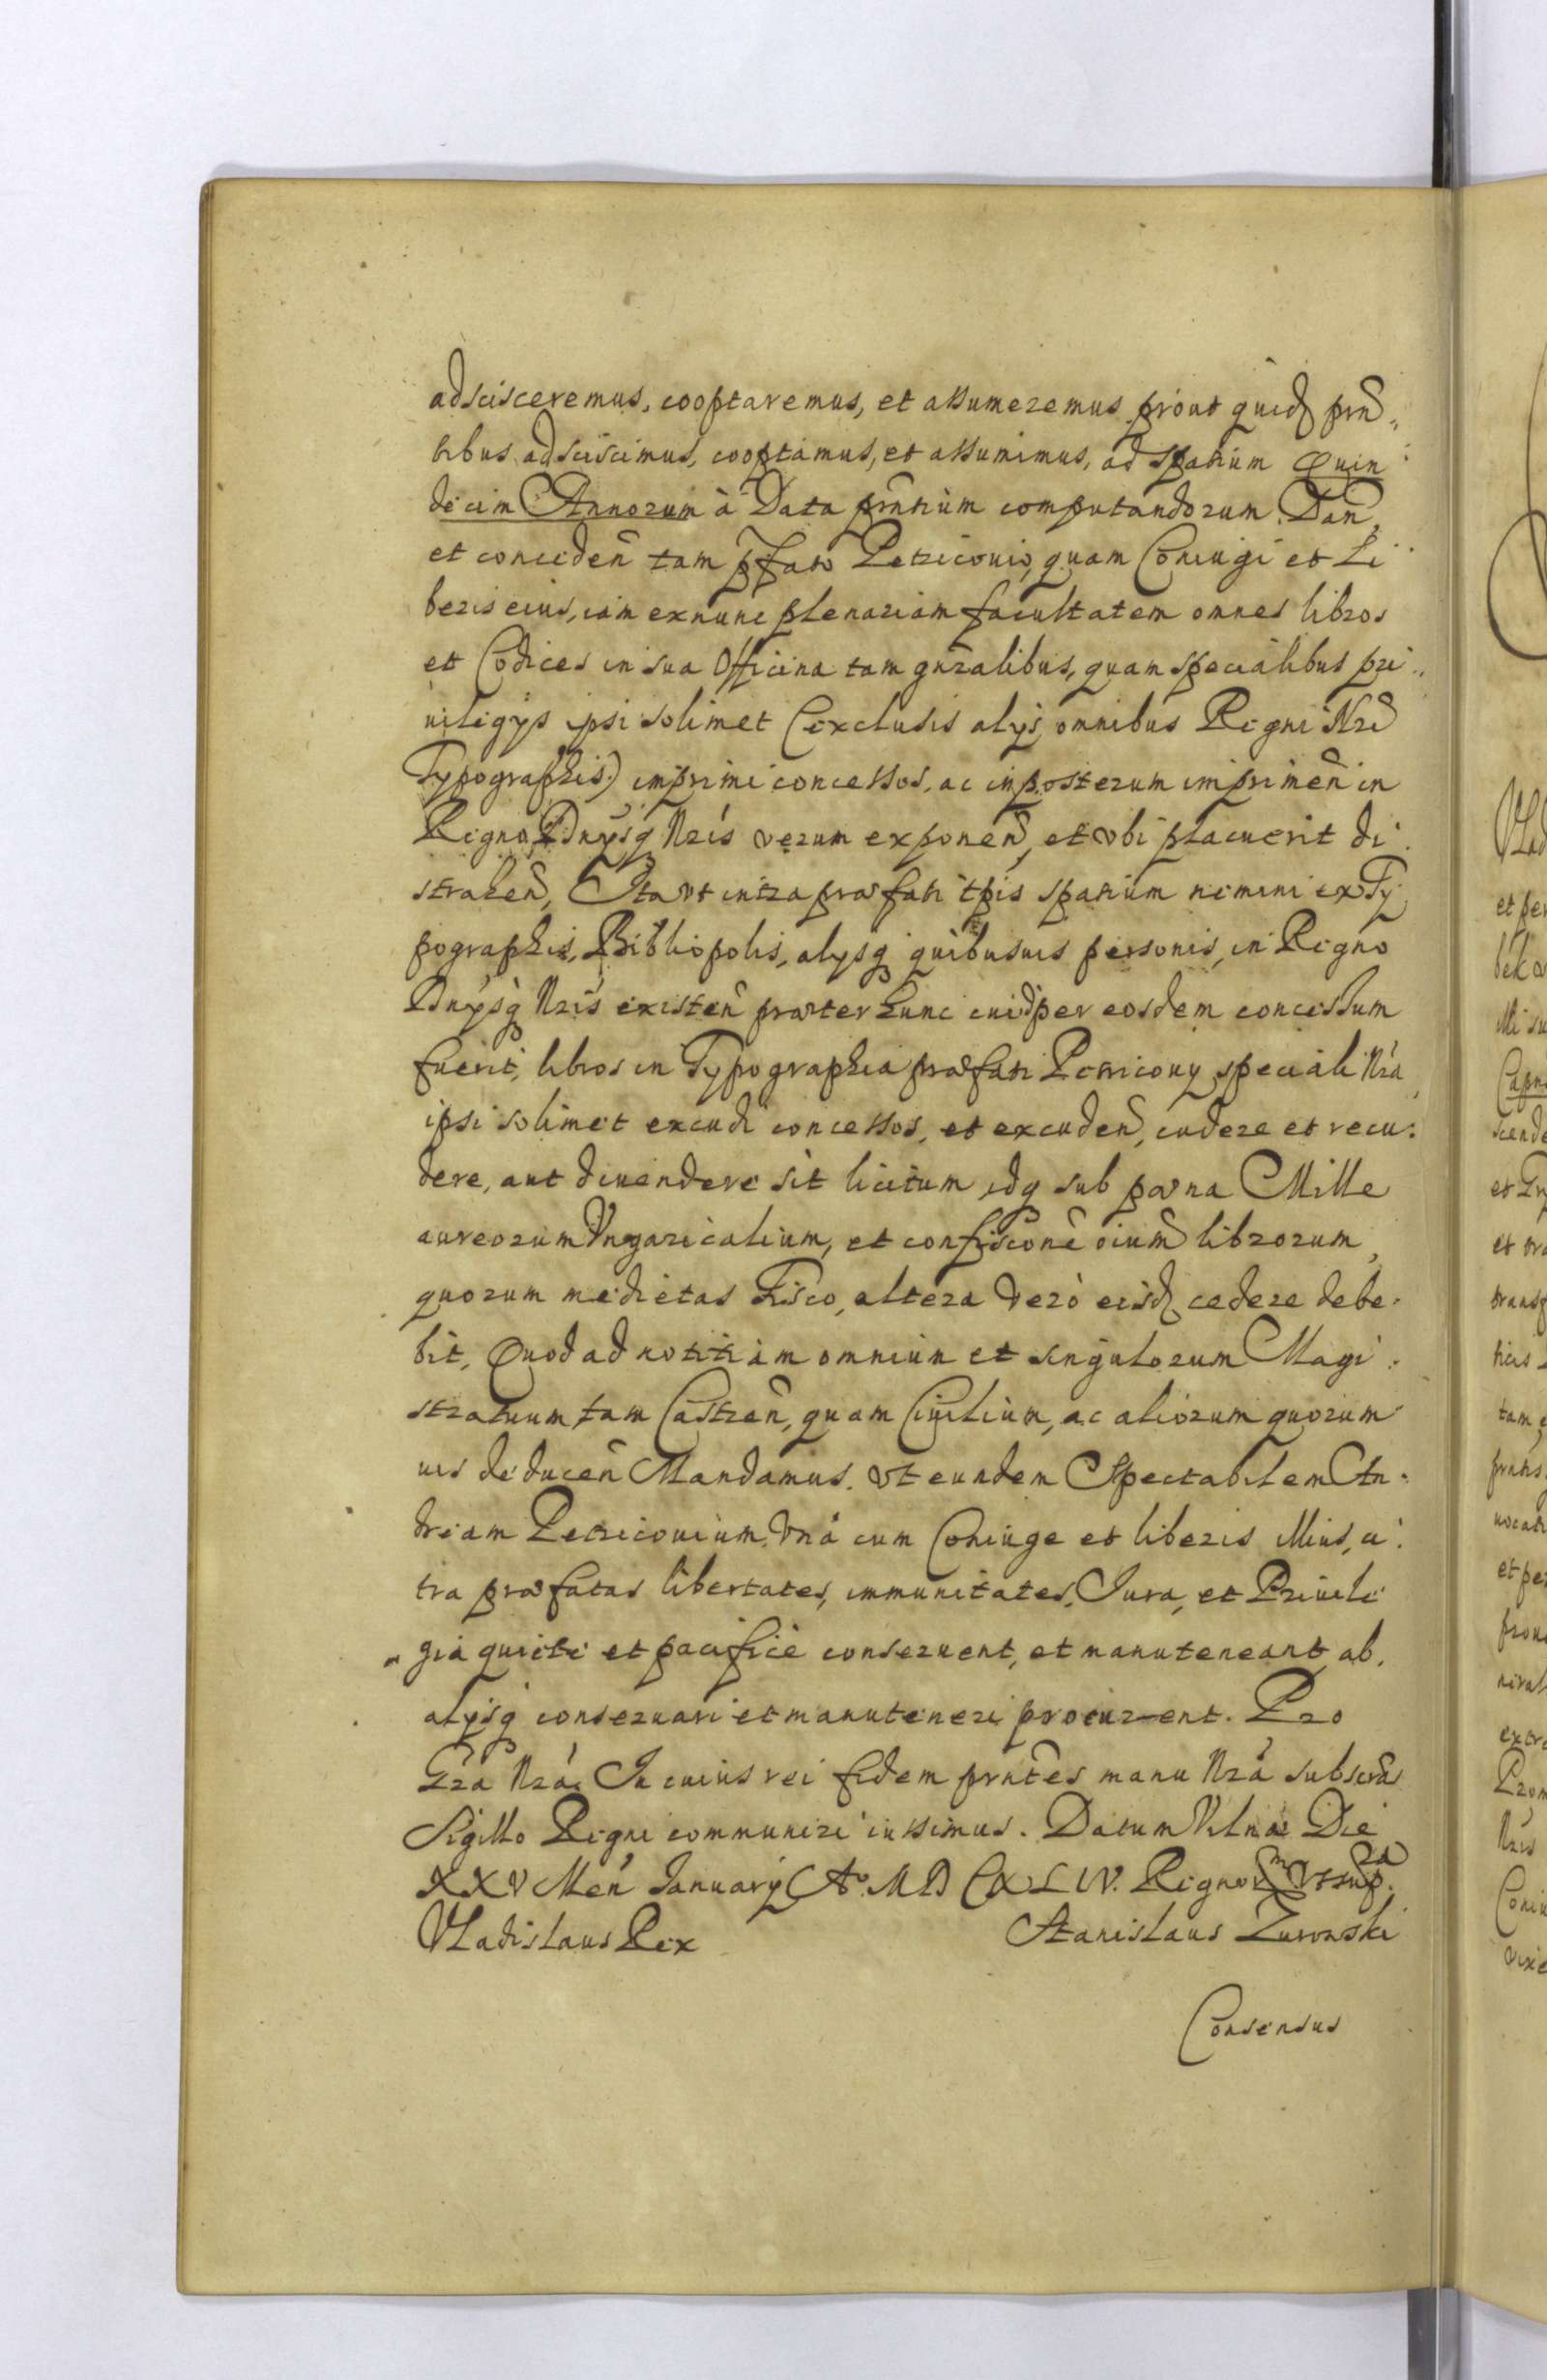 adscisceremus, cooptaremus, et assumeremus prout quid prñ„
tibus adsciscimus, cooptamus, et assumimus, ad spatium Quin
decim Annorum à Data prñtium computandorum. Dañ,
et conceden̄ tam p̄fato Petricouio, quam Coniugi et Li
beris eius, iam exnunc plenariam facultatem omnes libros
et Codices in sua Officina tam gñralibus, quam specialibus pri„
uilegijs ipsi solimet (exclusis alijs omnibus Regni Nri
Typographis) imprimi concessos, ac inposterum imprimen̄ in
Regno, Dnijsq Nris verum exponen̄, et vbi placuerit di
strahen̄, Ita vt intra præfati tp̄is spatium nemini ex Ty
pographis, Bibliopolis, alijsq quibusuis personis, in Regno
Dnijsq Nris existen̄ præter hunc cuid per eosdem concessum
fuerit, libros in Typographia præfati Petricouij speciali Nra
ipsi solimet excudi concessos, et excuden̄, cudere et recu:
dere, aut diuendere sit licitum idq sub pœna Mille
aureorum Vngaricalium, et confiscone oium librorum,
quorum medietas Fisco, altera verò eisd cedere debe.
bit, Quod ad notitiam omnium et singulorum Magi:
stratuum tam Castren̄, quam Ciuilium, ac aliorum quorum
uis deducen̄ Mandamus. Vt eundem Spectabilem An:
dream Petricouium, vnà cum Coniuge et liberis illius, ci:
tra præfatas libertates, immunitates, Iura, et Priuile
gia quietè et pacificè conseruent, et manuteneant, ab,
alijsq conseruari et manuteneri procurent. Pro
Gra Nra. In cuius rei fidem prntes manu Nra subscrās
Sigillo Regni communiri iussimus. Datum Vilnæ Die
XXV Men̄ Ianuarij Aº. MDCXLIV. Regnorm vt supra.
Vladislaus Rex Stanislaus Zuronski
Consensus